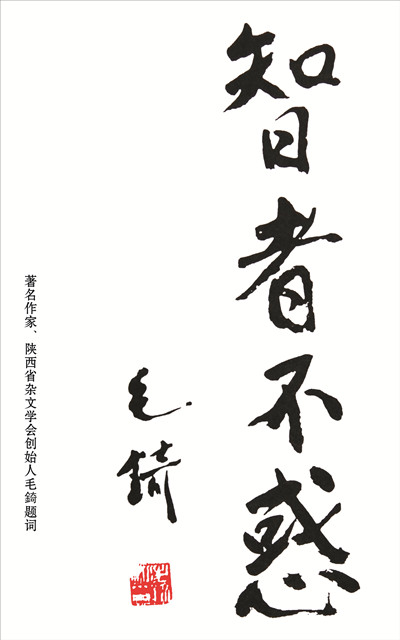 智者不惑
毛錡
著名作家、陕西省杂文学会创始人毛錡题词